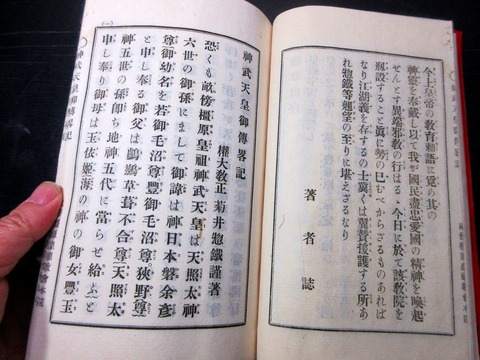 今上皇帝の教育勅語に寛め其の
神靈を奉戴し以て我が國民盡忠愛國の精神を喚起
せんとす異端邪教の行はる、今日に於て該教院を
瓶設すること眞に勢の已むべからさるものあれば
なり江湖義を存するの士冀くは翼賛援護する所あ
れ惣鐵等翹望の至りに堪えざるなり
著者誌
神武天皇御傳畧記
權大教正菊井惣鐵謹著
恐くも畝傍橿原皇祖神武天皇は天照太神
六世の御孫にまして御諱は神日本磐余彦
尊御幼名を若御毛沼尊豊御毛沼尊狭野尊
と申し奉る御父は鸕鷀草葺不合尊天照太
神五世の孫卽ち地神五代に當らせ給ふと
申し奉り御母は玉依姫海の神の御女豐玉
(一)